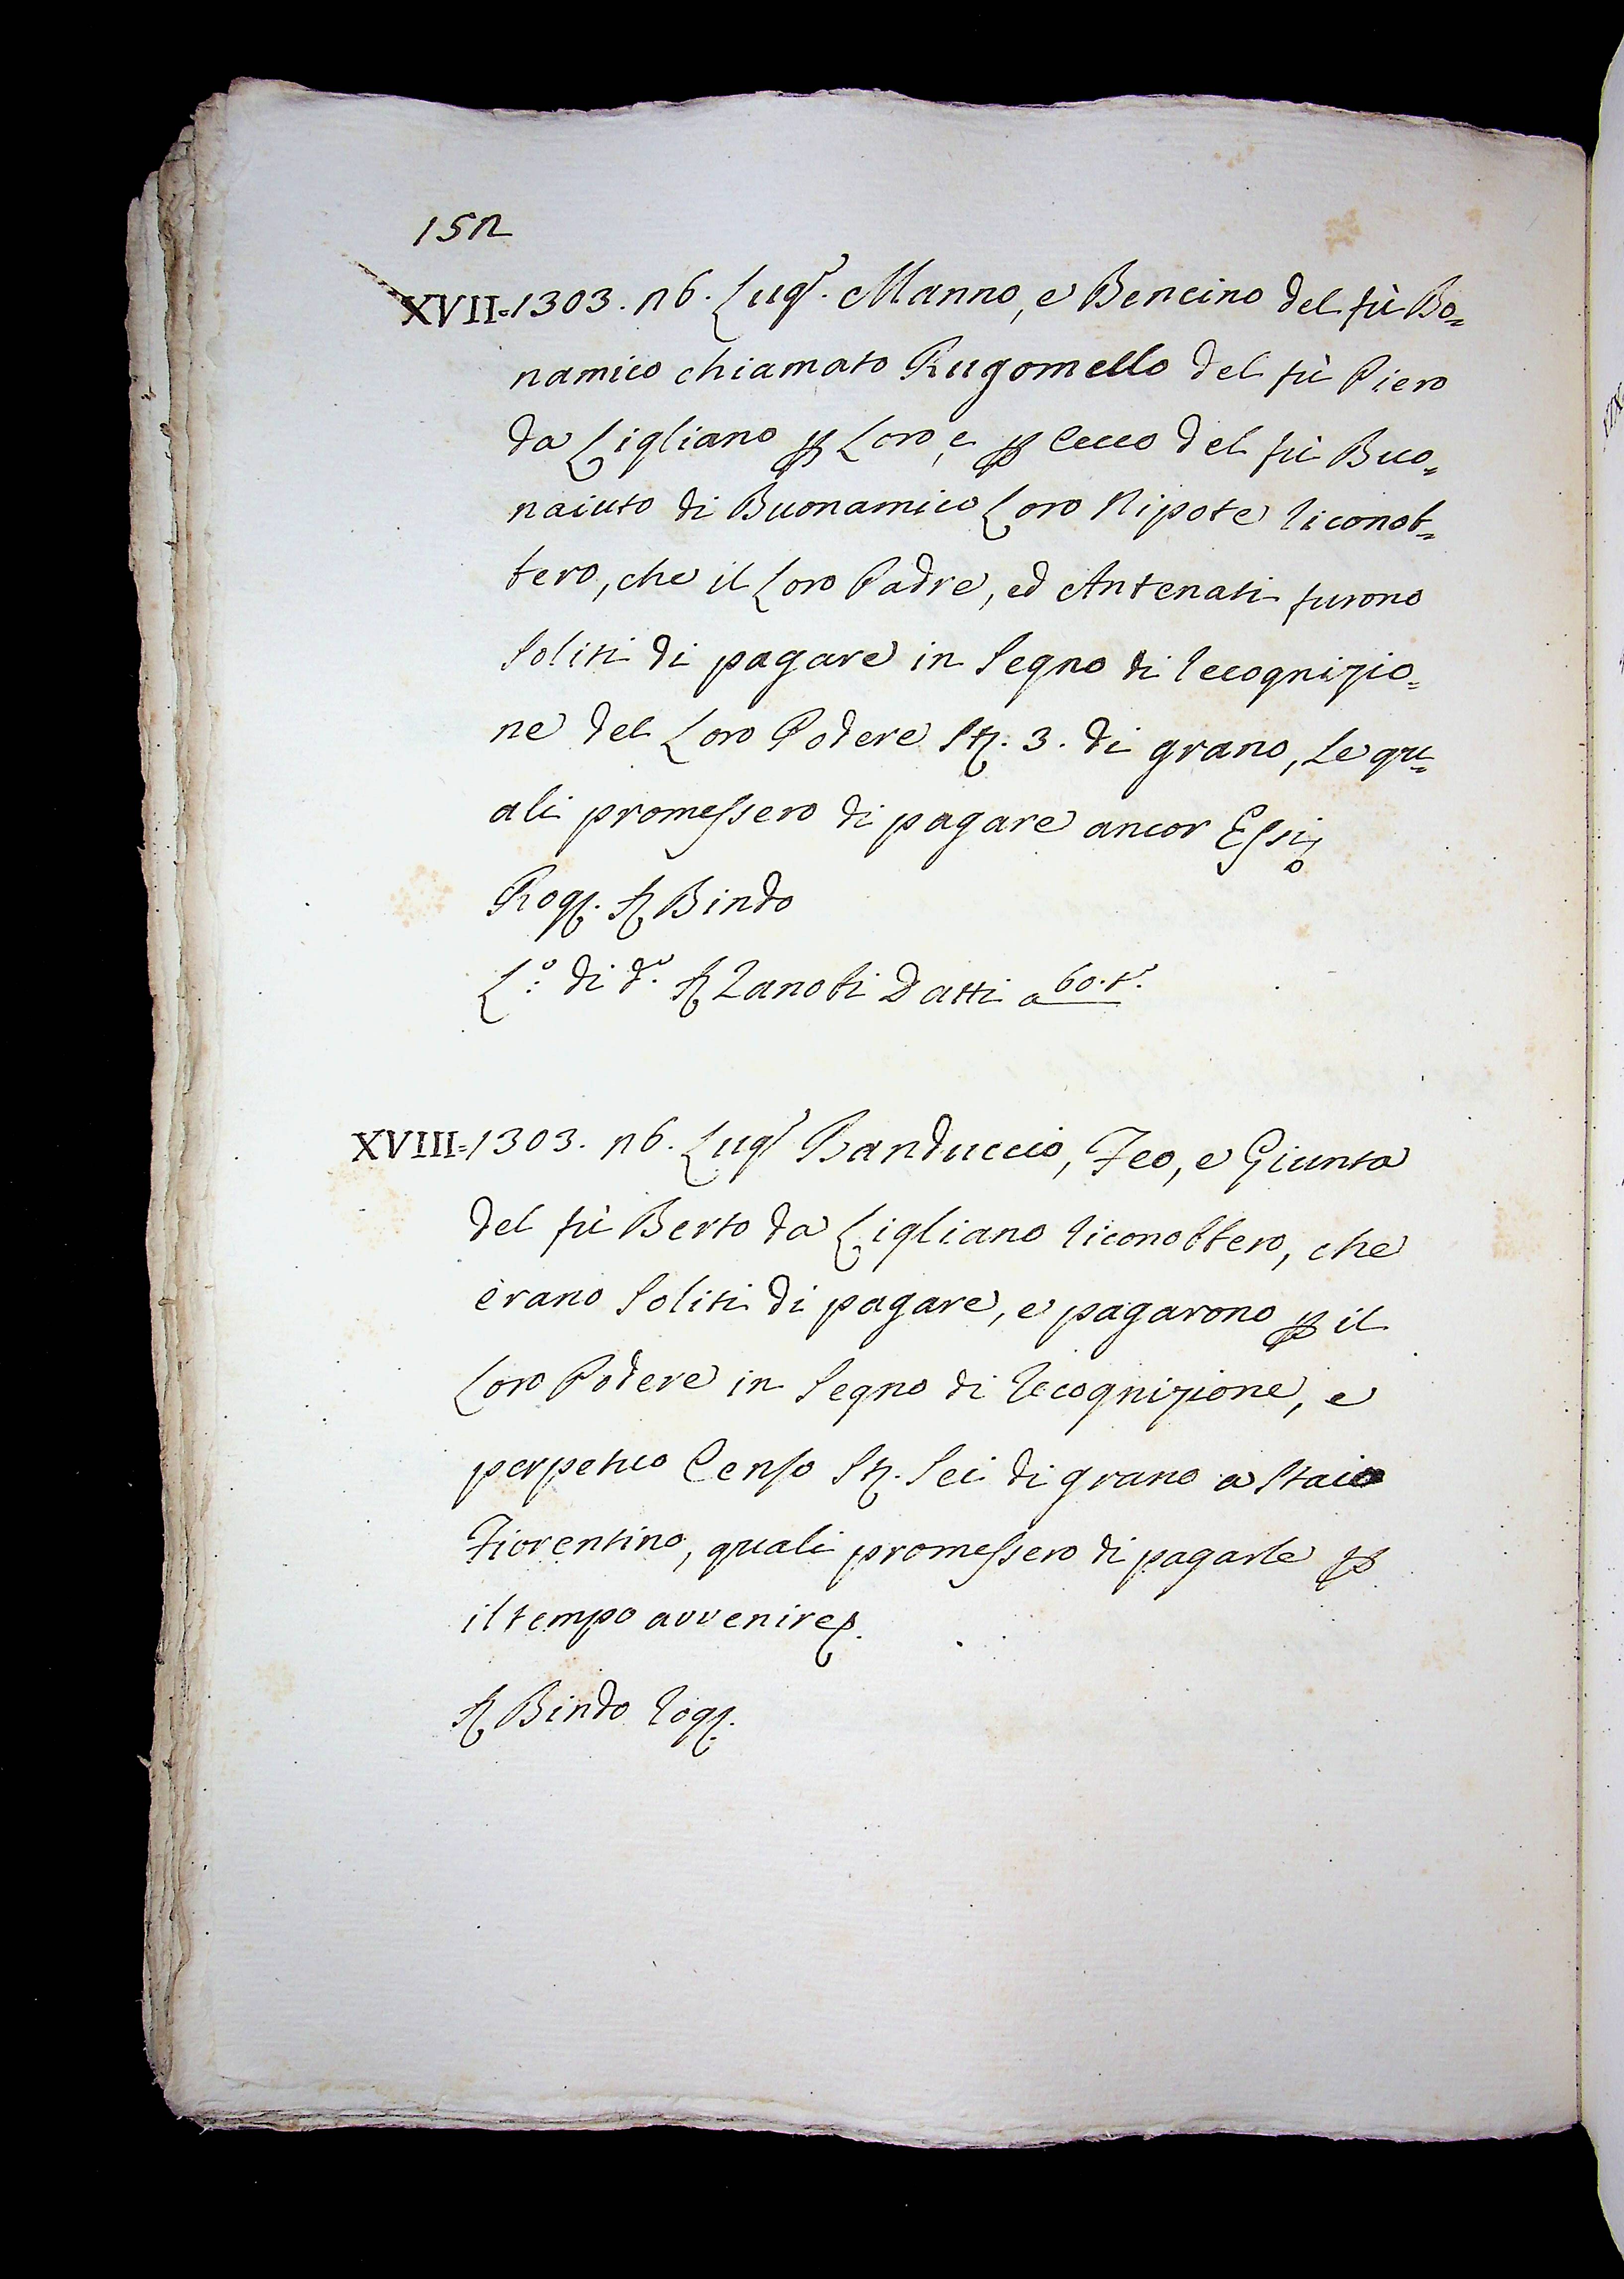 152
XVII=1303. 26. Lugl. Manno, e Bencino del fù Bo=
namico chiamato Rugomello del fù Piero
da Ligliano p Loro, e p Cecco del fù Buo=
naiuto di Buonamico Loro Nipote riconob=
bero, che il Loro Padre, ed Antenati furono
soliti di pagare in segno di recognizio=
ne del Loro Podere St. 3. di grano, Le qu=
ali promessero di pagare ancor Essi
Rog. S Bindo
L.º di d.º S Zanobi Datti a 60.t.
XVIII=1303. 26. Lugl Banduccio, Feo, e Giunta
del fù Berto da Ligliano riconobbero, che
erano soliti di pagare, e pagarono p il
Loro Podere in segno di recognizione, e
perpetuo Censo St. sei di grano a staio
Fiorentino, quali promessero di pagarle p
il tempo avvenire.
S Bindo rog.